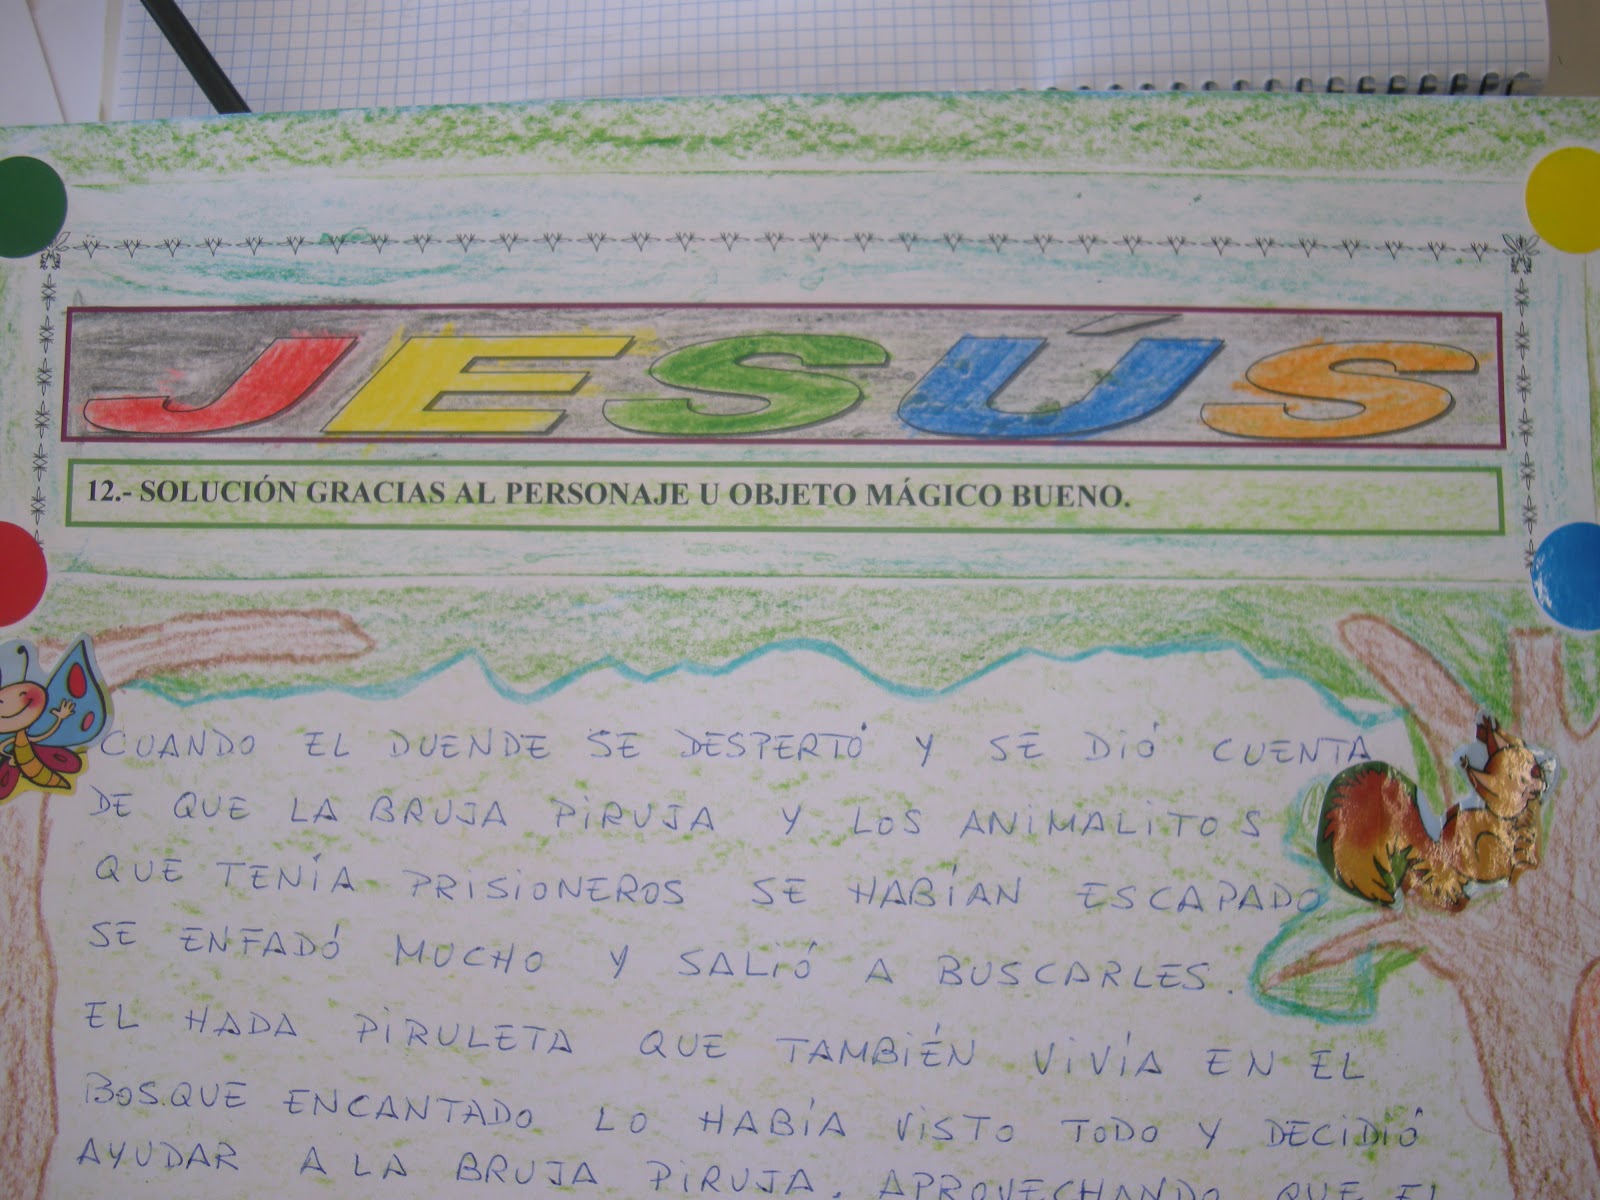 JESÚS
12.- SOLUCIÓN GRACIAS AL PERSONAJE U OBJETO MÁGICO BUENO.
CUANDO EL DUENDE SE DESPERTÓ Y SE DIÓ CUENTA
DE QUE LA BRUJA PIRUJA Y LOS ANIMALITOS
QUE TENÍA PRISIONEROS SE HABÍAN ESCAPADO
SE ENFADÓ MUCHO Y SALIÓ A BUSCARLES.
EL HADA PIRULETA QUE TAMBIÉN VIVÍA EN EL
BOSQUE ENCANTADO LO HABÍA VISTO TODO Y DECIDIÓ
AYUDAR A LA BRUJA PIRUJA. APROVECHANDO QUE EL